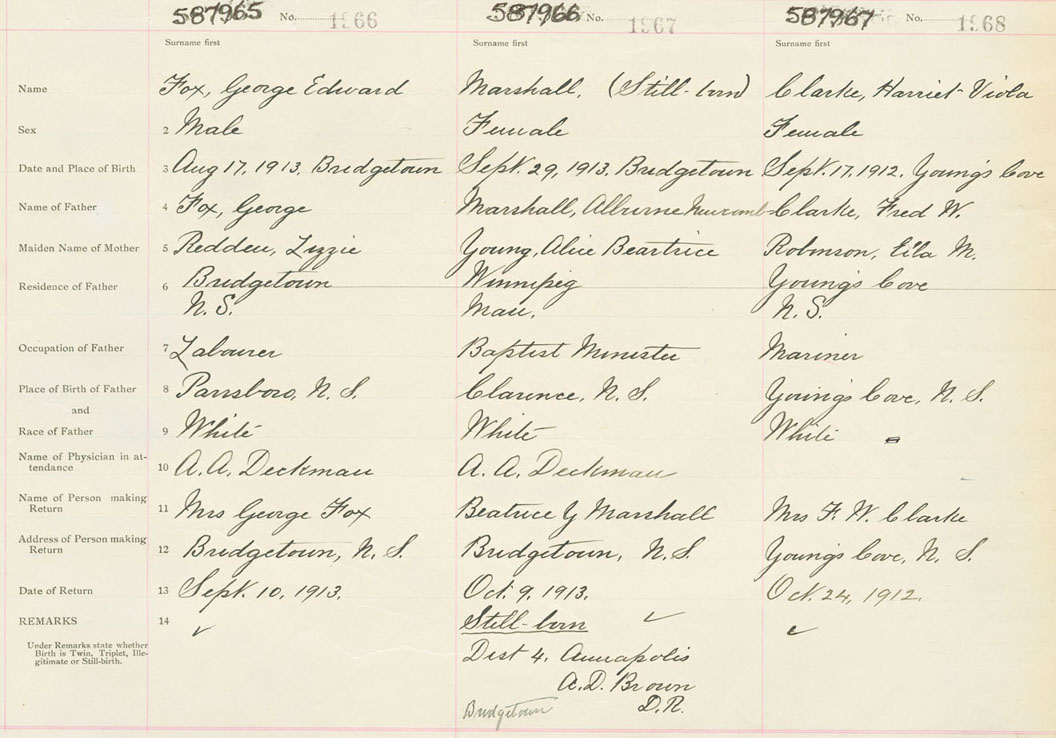 587965 No. 1966 587966 No. 1967 587967 No. 1968
Surname first Surname first Surname first
Name Fox, George Edward Marshall, (Still-born) Clarke, Harriet Viola
Sex 2 Male Female Female
Date and Place of Birth 3 Aug 17, 1913, Bridgetown Sept. 29, 1913, Bridgetown Sept. 17, 1912, Young's Cove
Name of Father 4 Fox, George Marshall, Alburne Newcomb Clarke, Fred W.
Maiden Name of Mother 5 Redden, Lizzie Young, Alice Beartrice Robinson, Eila M.
Residence of Father 6 Bridgetown Winnipeg Young's Cove
N.S. Man. N.S.
Occupation of Father 7 Labourer Baptist Minister Mariner
Place of Birth of Father 8 Parrsboro, N.S. Clarence, N.S. Young's Cove, N.S.
and
Race of Father 9 White White White
Name of Physician in at-
tendance 10 A.A. Deckman A.A. Deckman
Name of Person making
Return 11 Mrs George Fox Beatrice Y Marshall Mrs F. W. Clarke
Address of Person making
Return 12 Bridgetown, N.S. Bridgetown, N.S Young's Cove, N.S.
Date of Return 13 Sept. 10, 1913. Oct. 9, 1913. Oct. 24, 1912.
REMARKS 14 Still-born
Under Remarks state whether
Birth is Twin, Triplet, Ille-
gitimate or Still-birth.
Dist 4. Annapolis
A.D. Brown
D.R.
Bridgetown